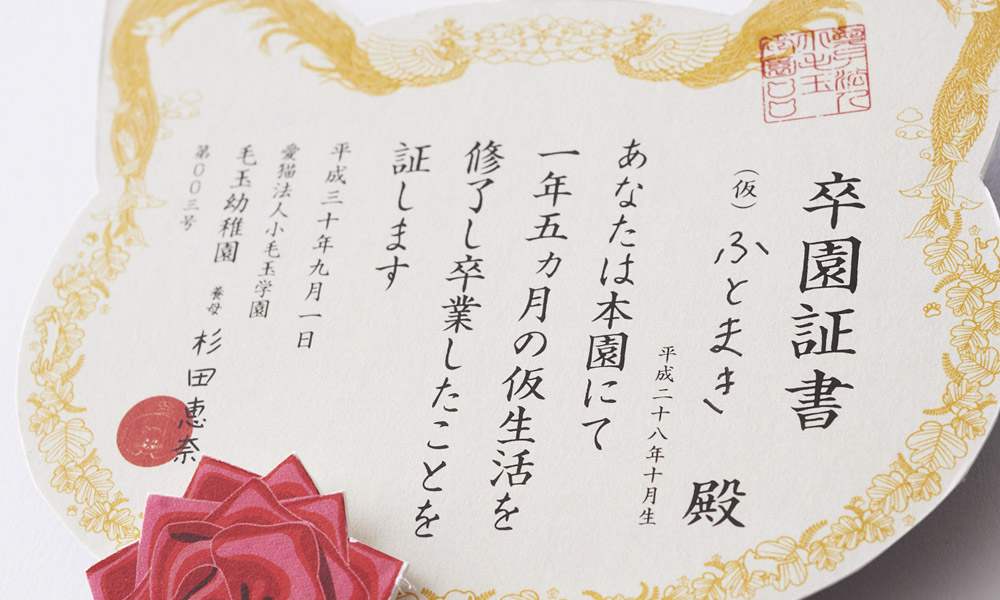 卒園証書
(仮)ふとまき 殿
平成二十八年十月生
あなたは本園にて
一年五カ月の仮生活を
修了し卒業したことを
証します
平成三十年九月一日
愛猫法人小毛玉学園
毛玉幼稚園
養母 杉田恵奈
第００三号